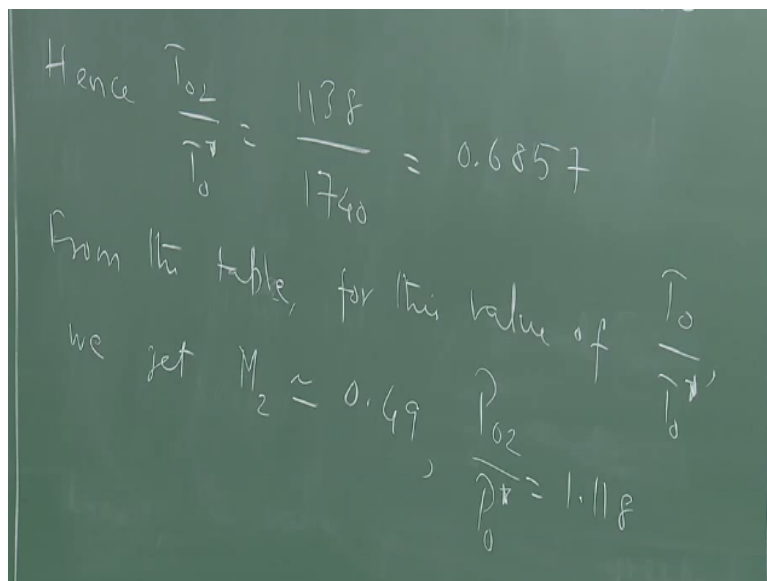 Hence T₀₂/T₀* = 1138/1740 = 0.6857
From the table, for this value of T₀/T₀*,
we get M₂ ≃ 0.49, P₀₂/P₀* = 1.118